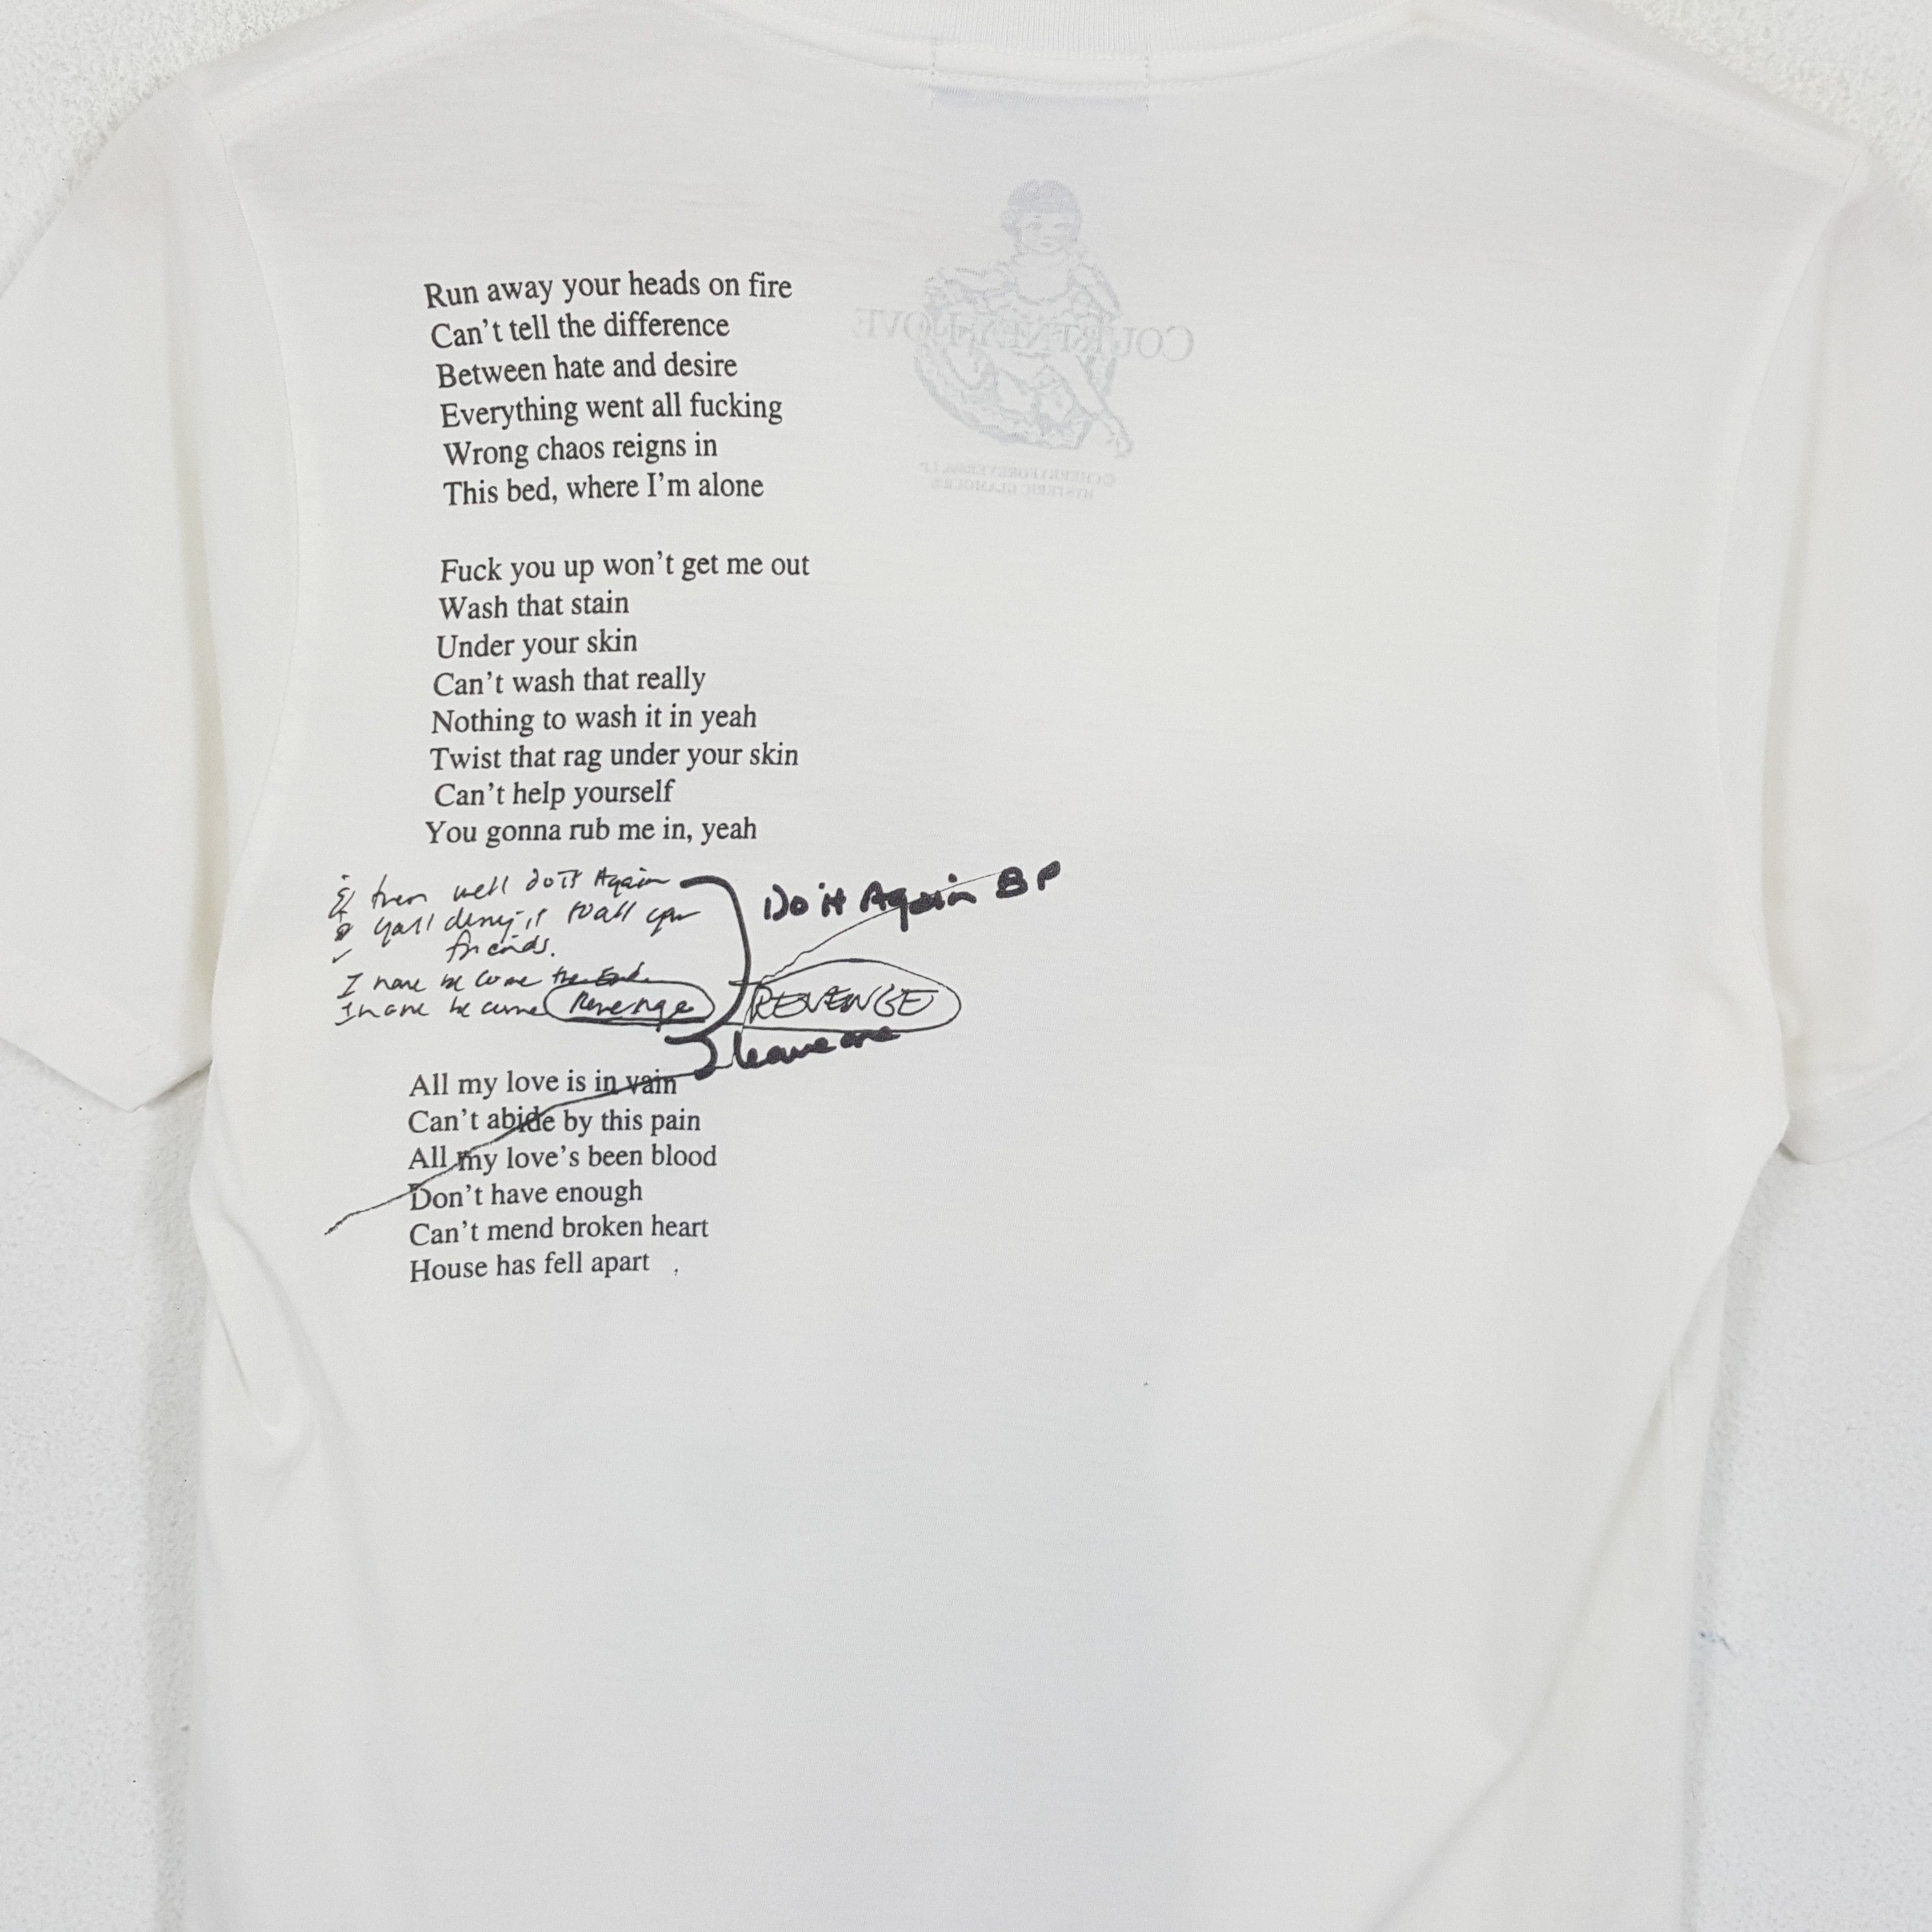 COURTNEY LOVE
HYSTERIC GLAMOUR
Run away your heads on fire
Can't tell the difference
Between hate and desire
Everything went all fucking
Wrong chaos reigns in
This bed, where I'm alone
Fuck you up won't get me out
Wash that stain
Under your skin
Can't wash that really
Nothing to wash it in yeah
Twist that rag under your skin
Can't help yourself
You gonna rub me in, yeah
& then well do it Again
Do it Again BP
deny it to all your
friends.
I have become the End
I have become Revenge
REVENGE
leave one
All my love is in vain
Can't abide by this pain
All my love's been blood
Don't have enough
Can't mend broken heart
House has fell apart